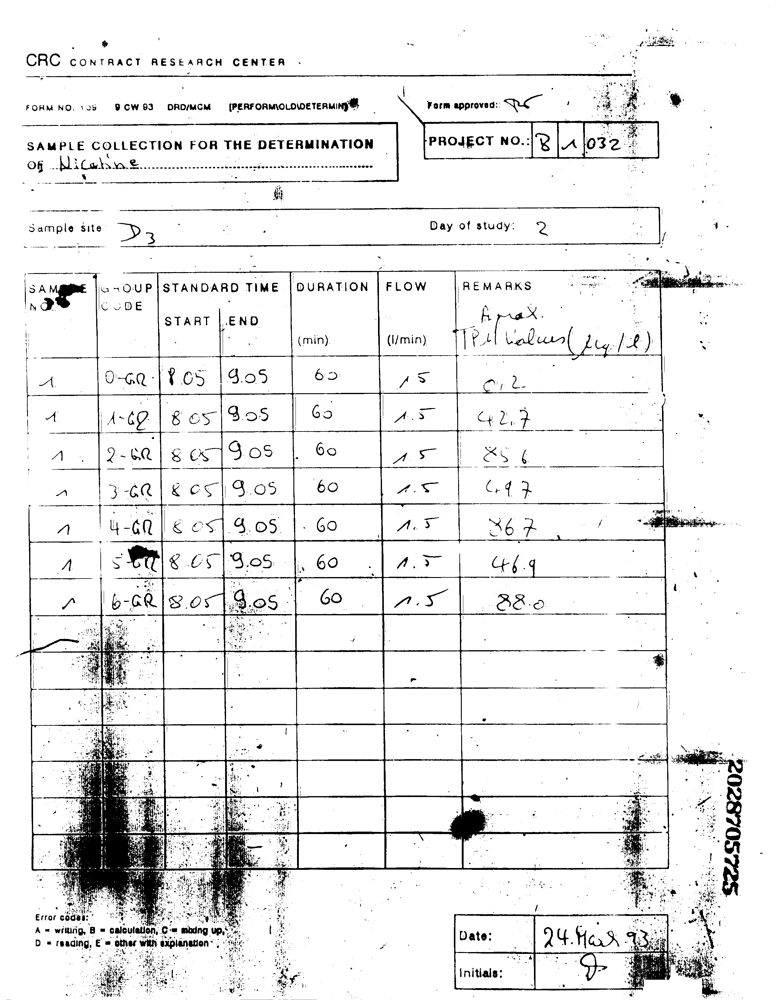 CRC CONTRACT RESEARCH CENTER
FORM NO. 109 9 CW 93 DRD/MGM [PERFORM\OLD\DETERMIN]
Form approved:
SAMPLE COLLECTION FOR THE DETERMINATION
OF Nicotine
PROJECT NO.: B 1 032
Sample site D3
Day of study: 2
SAMPLE NO. GROUP CODE STANDARD TIME DURATION FLOW REMARKS
START END (min) (l/min) Aprox. TPM Values (µg/l)
1 0-GR 8.05 9.05 60 1.5 0.2
1 1-GR 8 05 9.05 60 1.5 42.7
1 2-GR 8 05 9 05 60 1.5 85 6
1 3-GR 8 05 9.05 60 1.5 49 7
1 4-GR 8 05 9.05 60 1.5 86 7
1 5-GR 8.05 9.05 60 1.5 46.9
1 6-GR 8.05 9.05 60 1.5 88.0
2028705725
Error codes:
A = writing, B = calculation, C = mixing up,
D = reading, E = other with explanation
Date: 24. March 93
Initials: